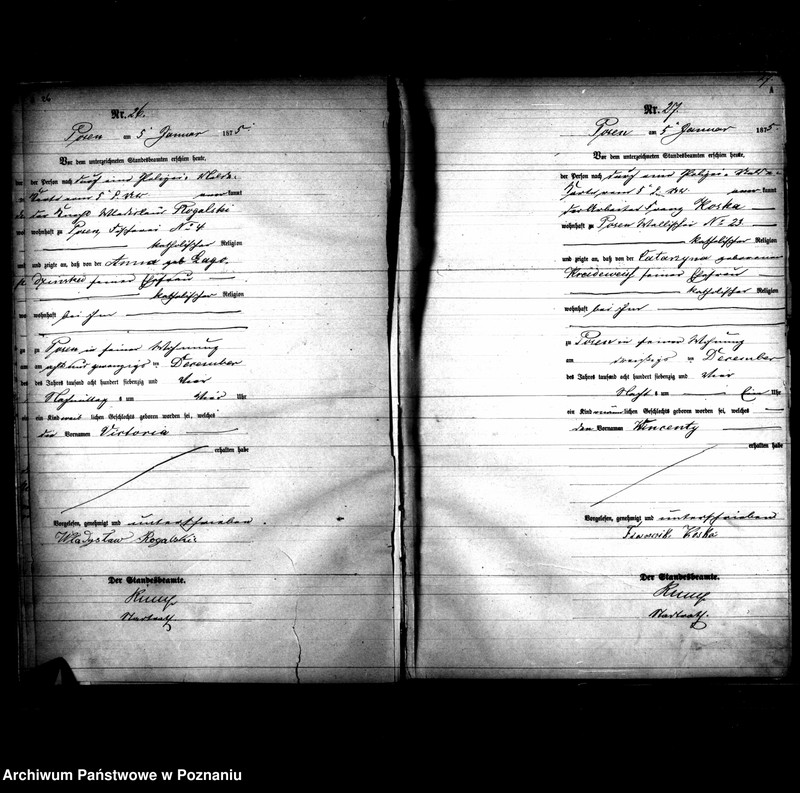 26
Nr. 26.
Posen am 5 Januar 1875.
Vor dem unterzeichneten Standesbeamten erschien heute,
der Person nach durch eine Polizei-Melde-
Karte vom 5 d. Mts. anerkannt
der Knecht Wladislaus Rogalski
wohnhaft zu Posen No 4
katholischer Religion
und zeigte an, daß von der Anna geb. Lago-
dzinska seiner Ehefrau
katholischer Religion
wohnhaft bei ihm
zu Posen in seiner Wohnung
am acht und zwanzigs ten December
des Jahres tausend acht hundert siebenzig und vier
Nachmittag s um Uhr
ein Kind weib lichen Geschlechts geboren worden sei, welches
den Vornamen Victoria
erhalten habe
Vorgelesen, genehmigt und unterschrieben.
Władysław Rogalski
Der Standesbeamte.
Stadtrath.
27
A
Nr. 27.
Posen am 5 Januar 1875
Vor dem unterzeichneten Standesbeamten erschien heute,
der Person nach durch eine Polizei-Melde-
Karte vom 5 d. Mts. anerkannt
der Arbeiter Franz Koska
wohnhaft zu Posen Wallischei No 23
katholischer Religion
und zeigte an, daß von der Catarzyna geborenen
Kreideweiß seiner Ehefrau
katholischer Religion
wohnhaft bei ihm
zu Posen in seiner Wohnung
am dreißigs ten December
des Jahres tausend acht hundert siebenzig und vier
Nacht s um Ein Uhr
ein Kind männ lichen Geschlechts geboren worden sei, welches
den Vornamen Wincenty
erhalten habe
Vorgelesen, genehmigt und unterschrieben
Koska
Der Standesbeamte.
Stadtrath.
Archiwum Państwowe w Poznaniu